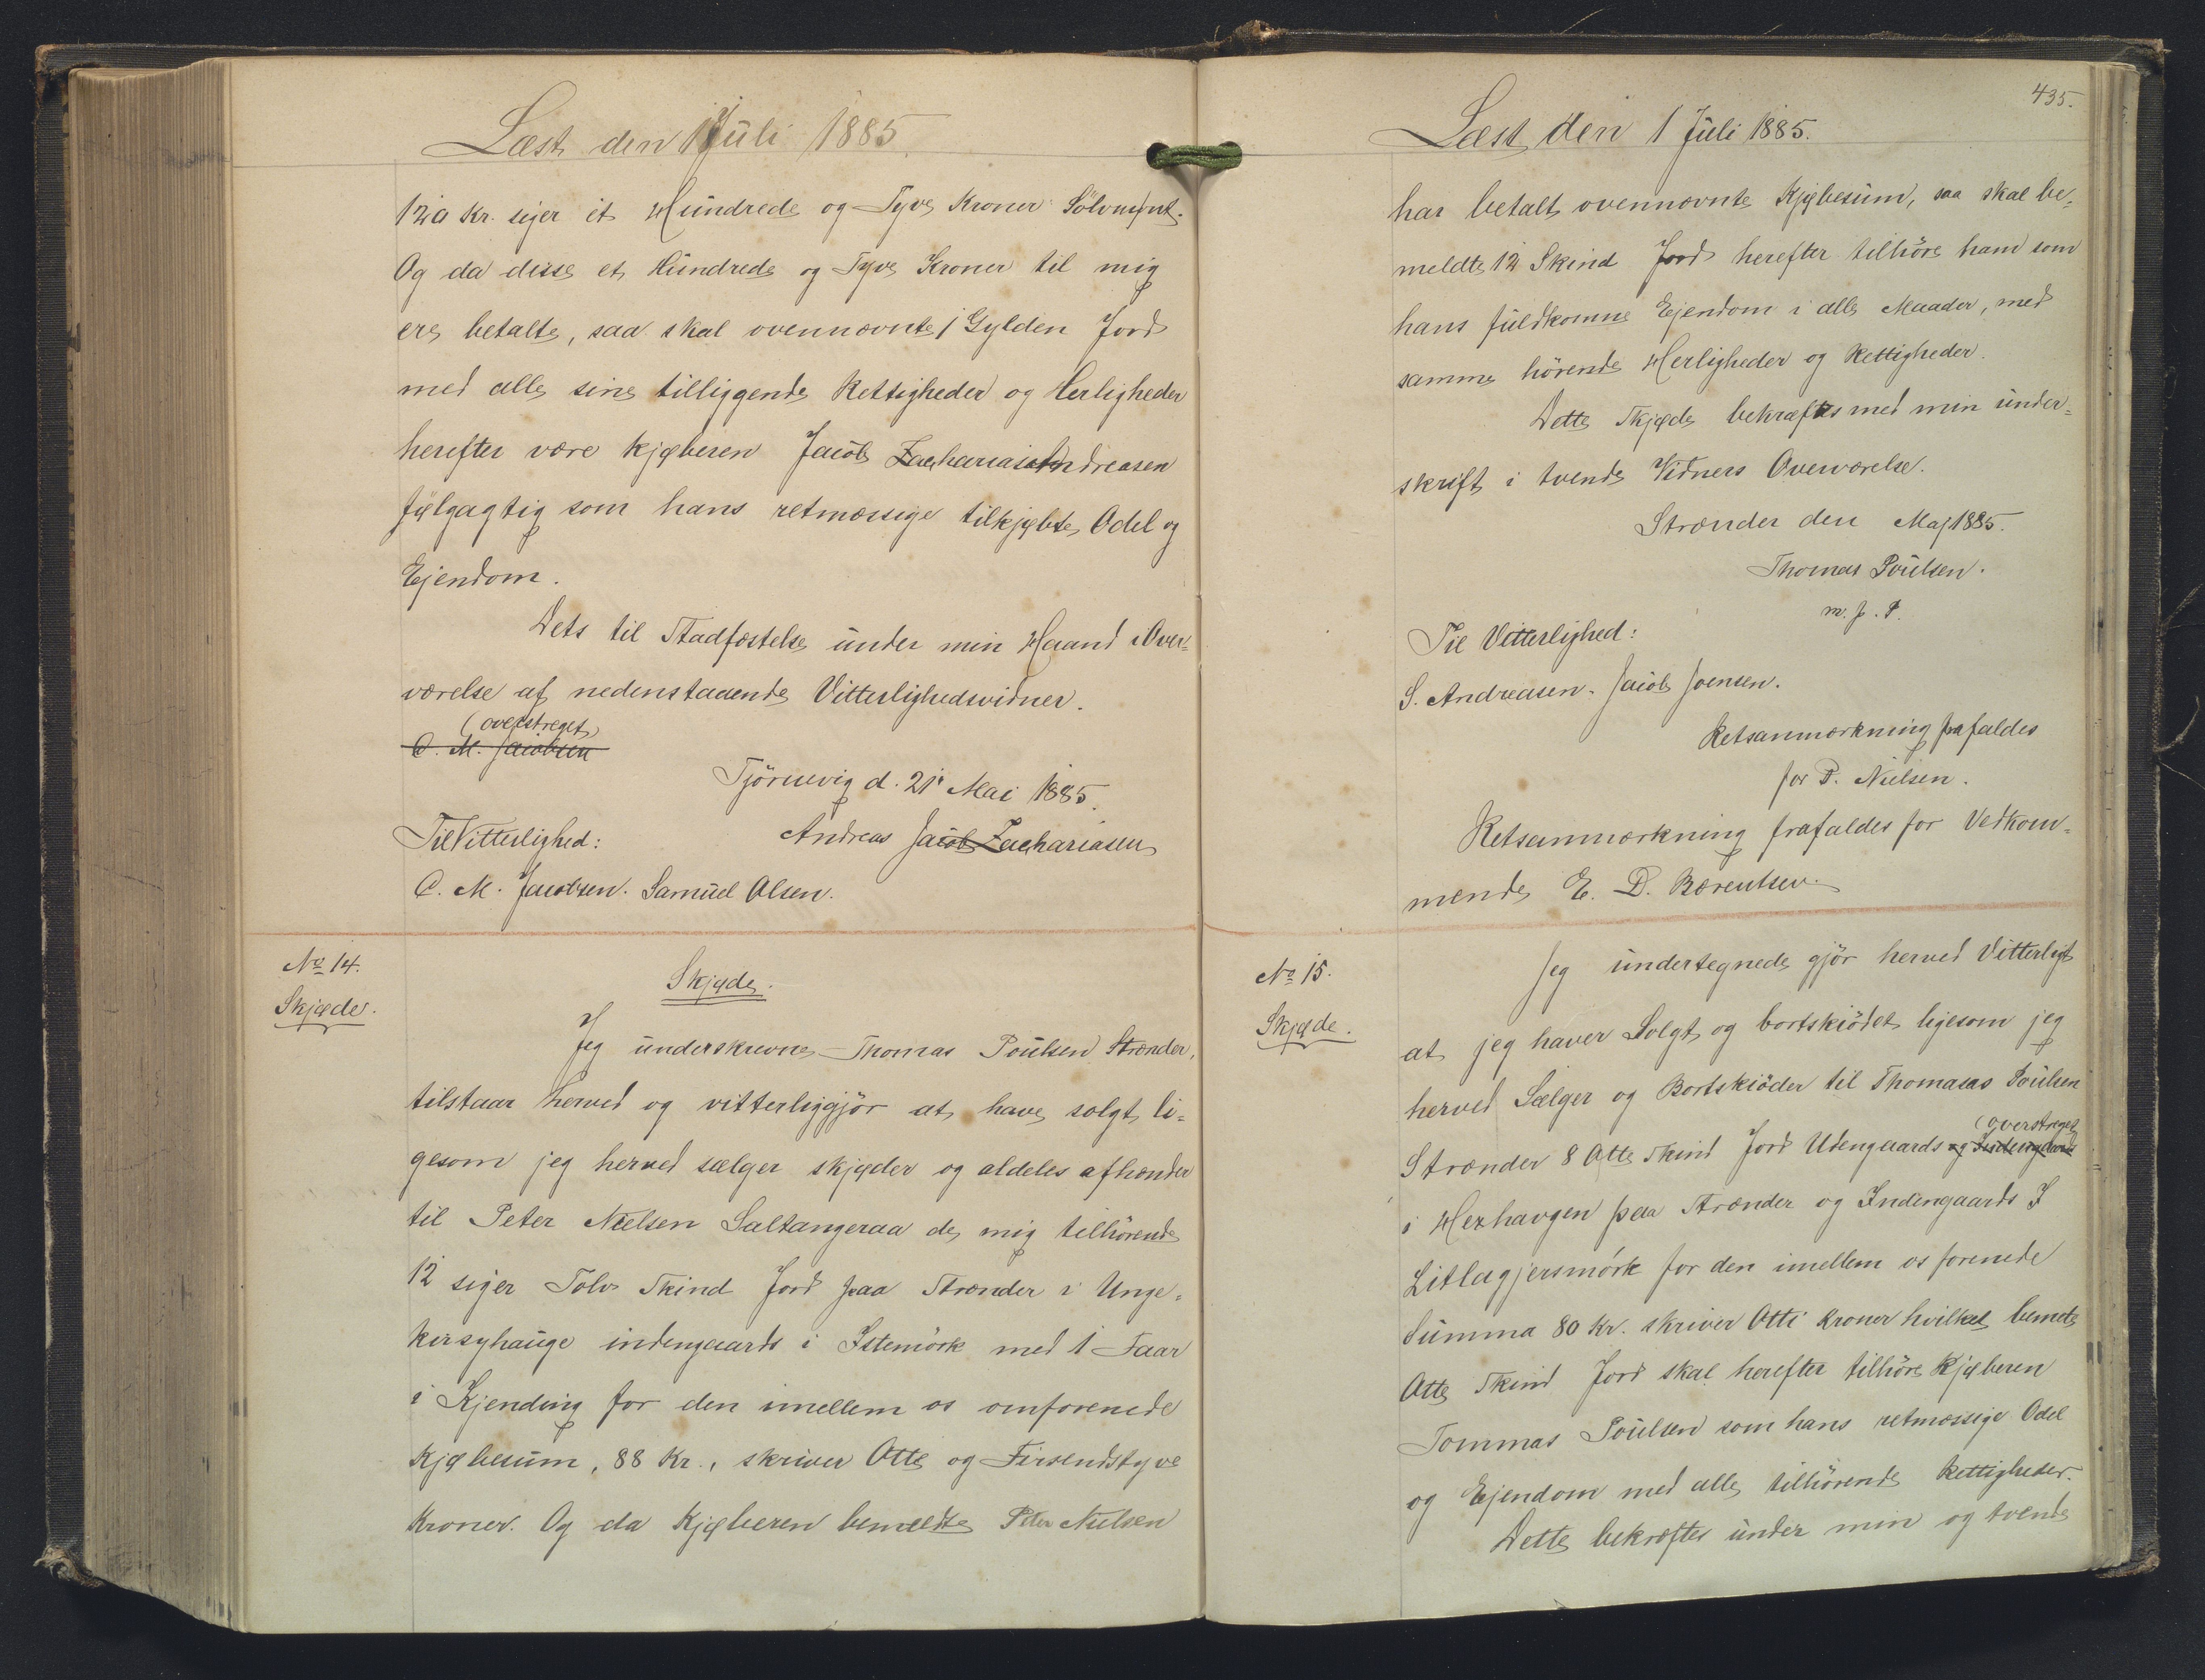 Læst den 1 Juli 1885.
120 Kr. siger et Hundrede og Tyve Kroner Sölvmynt.
Og da disse et Hundrede og Tyve Kroner til mig
ere betalte, saa skal ovennævnte 1 Gylden Jord
med alle sine tilliggende Rettigheder og Herligheder
herefter være Kjøberen Jacob Zachariasen Andreasen
følgagtig som hans retmæssige tilkjøbte Odel og
Ejendom.
Dets til Stadfæstelse under min Haand i Over-
værelse af nedenstaaende Vitterlighedsvidner.
(overstreget)
C. M. Jacobsen
Tjörnevig d. 21 Mai 1885.
Til Vitterlighed:
Andreas Jacob Zachariasen
C. M. Jacobsen. Samuel Olsen.
No 14.
Skjøde.
Skjøde.
Jeg underskrevne Thomas Poulsen Strænder,
tilstaar herved og vitterliggjör at have solgt li-
gesom jeg herved sælger skjøder og aldeles afhænder
til Peter Nielsen Saltangeraa de mig tilhörende
12 siger Tolv Skind Jord paa Strænder i Unge-
kersyhauge indengaards i Istemörk med 1 Faar
i Kjending for den imellem os omforenede
Kjøbesum, 88 Kr., skriver Otte og Firsendstyve
Kroner. Og da Kjøberen bemeldte Peter Nielsen
435.
Læst den 1 Juli 1885.
har betalt ovennævnte Kjøbesum, saa skal be-
meldte 12 Skind Jord herefter tilhöre ham som
hans fuldkomne Ejendom i alle Maader, med
samme hörende Herligheder og Rettigheder.
Dette Skjøde bekræftes med min under-
skrift i tvende Vidners Overværelse.
Strænder den Maj 1885.
Thomas Poulsen.
m. f. P.
Til Vitterlighed:
S. Andreasen. Jacob Joensen.
Retsanmærkning frafaldes
for P. Nielsen.
Retsanmærkning frafaldes for Vedkom-
mende E. D. Bærentsen.
No 15.
Skjøde.
Jeg undertegnede gjör herved Vitterligt
at jeg haver Solgt og bortskiödet ligesom jeg
herved Sælger og Bortskiöder til Thomasas Poulsen
(overstreget
Strænder 8 Otte Skind Jord Udengaards og Indengaards
i Herhavgen paa Strænder og Indengaards I
Litlagjersmörk for den imellem os forenede
Summa 80 Kr. skriver Otti Kroner hvilket bemete
Otte Skind Jord skal herefter tilhöre Kjøberen
Tommas Poulsen som hans retmæssige Odel
og Ejendom med alle tilhörende Rettigheder.
Dette bekræftes under min og tvende